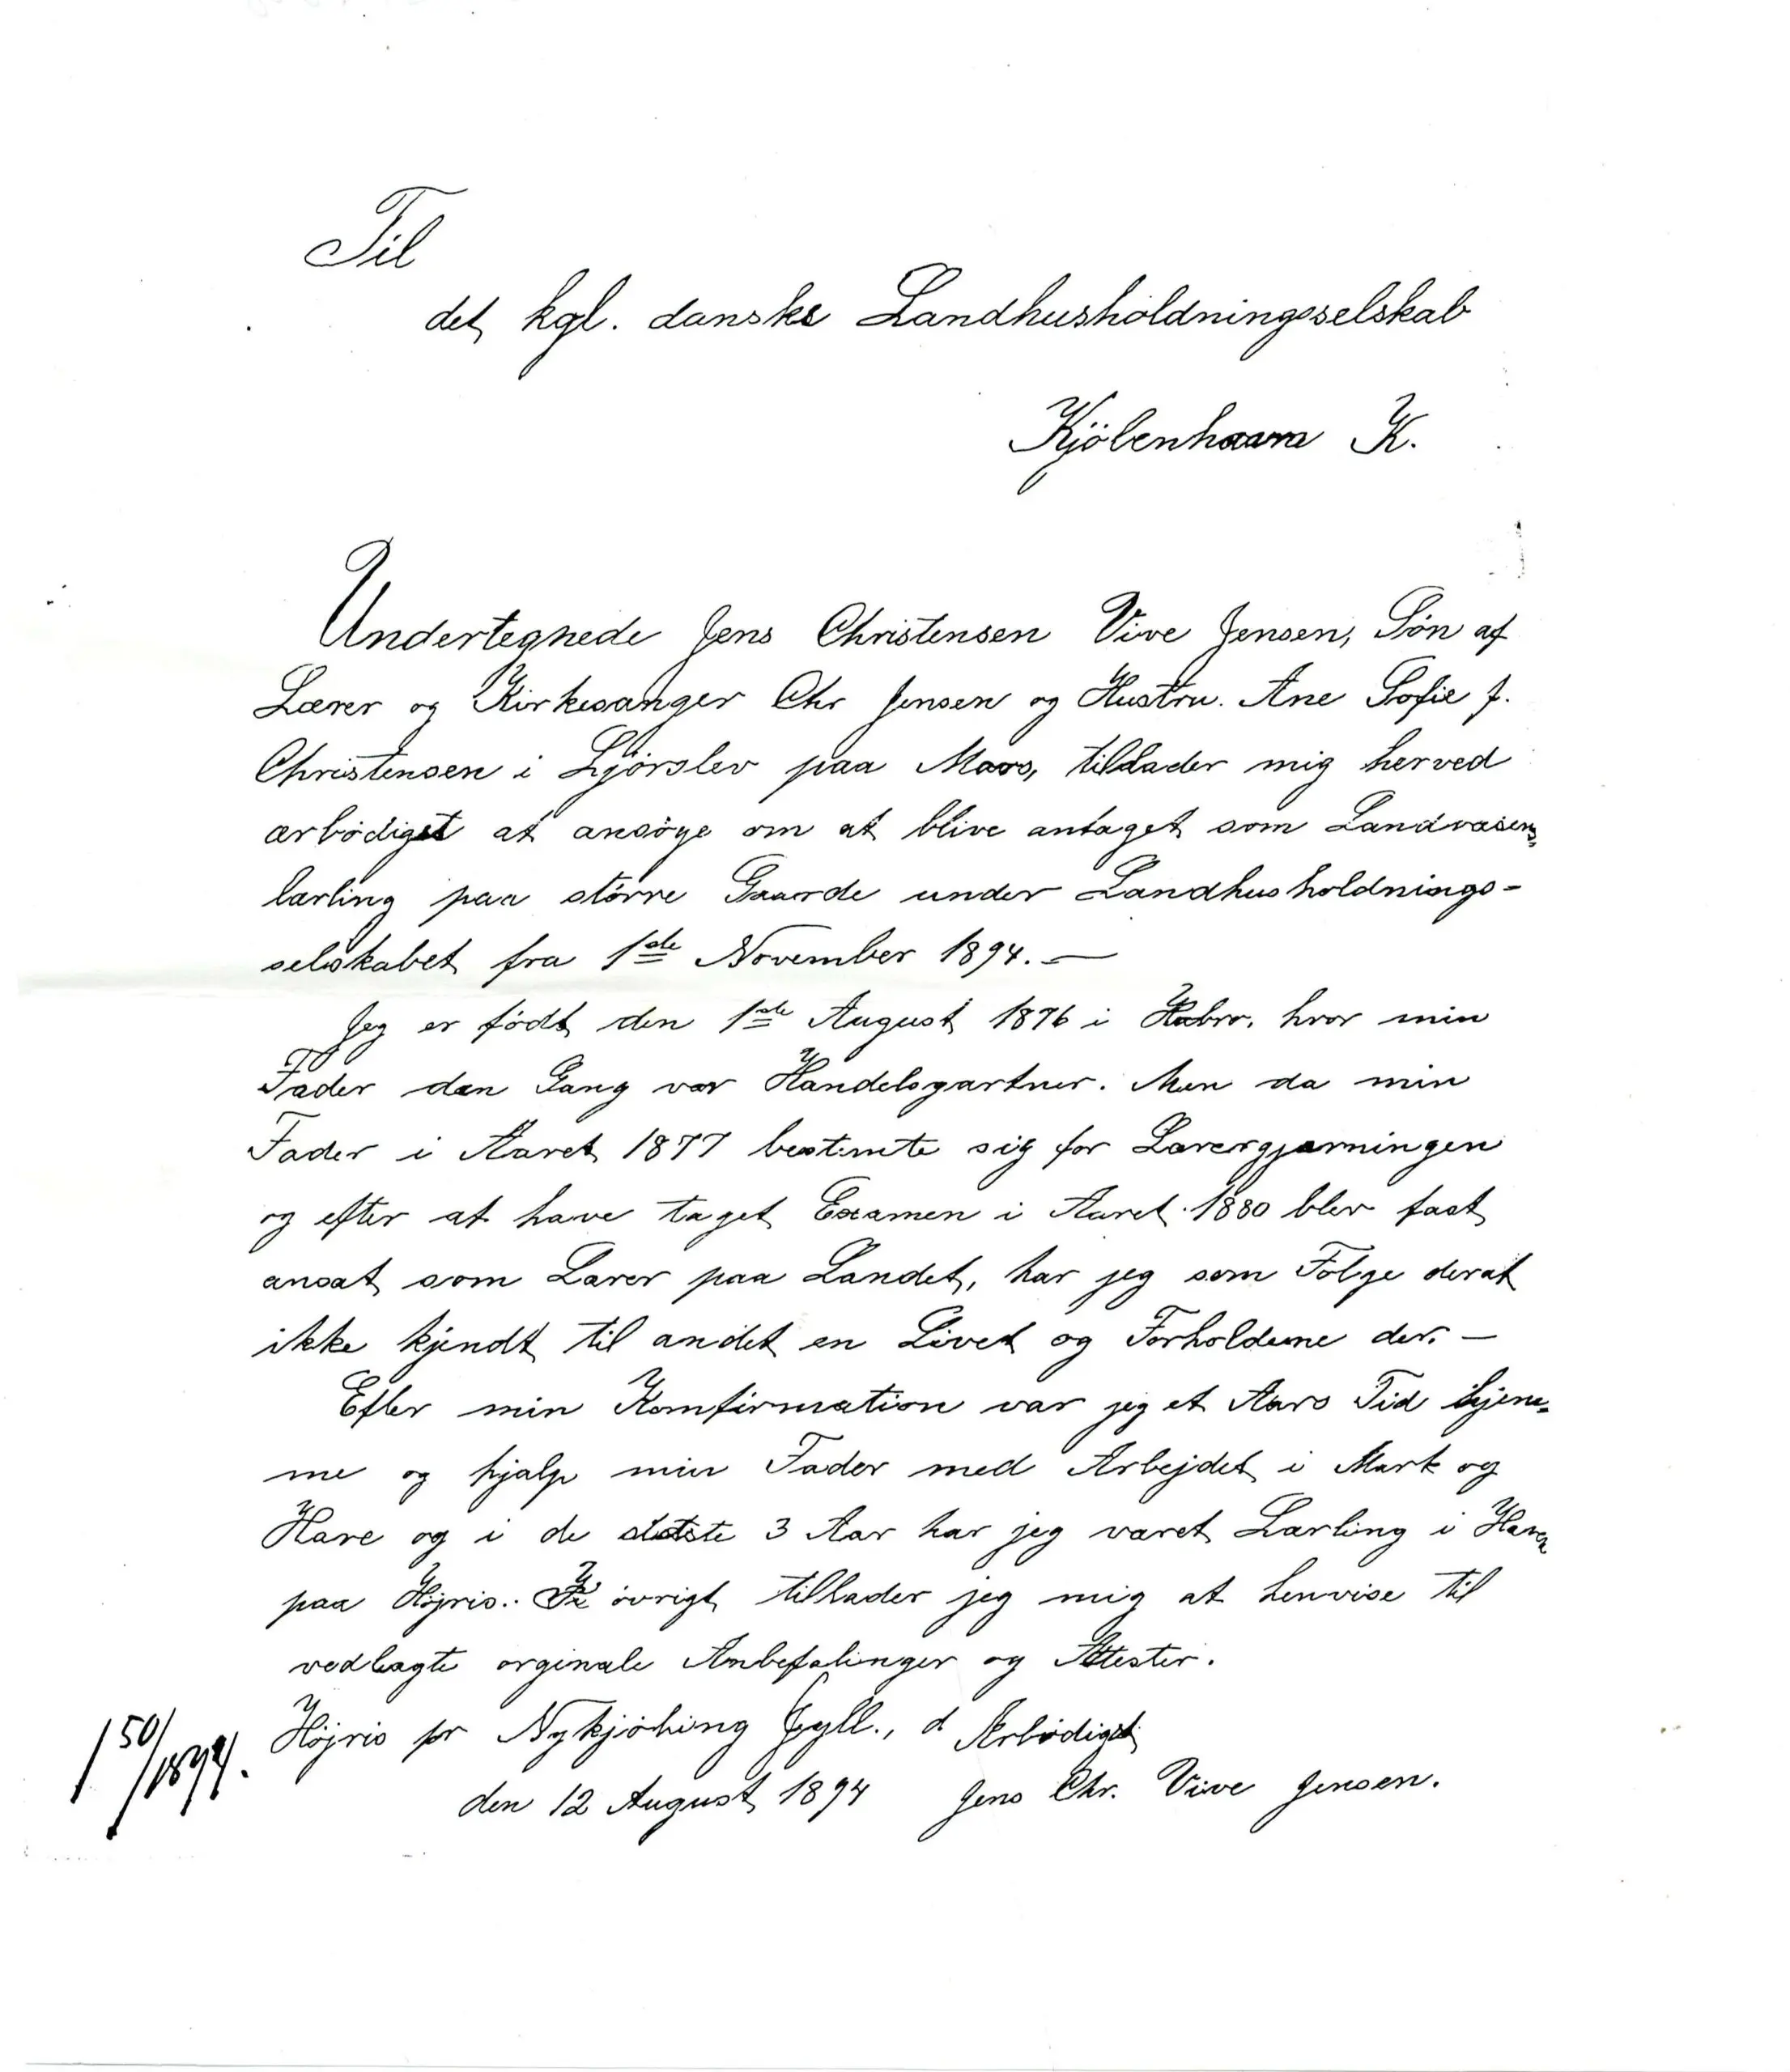 Til
det kgl. danske Landhusholdningsselskab
Kjöbenhavn K.
Undertegnede Jens Christensen Vive Jensen, Søn af
Lærer og Kirkesanger Chr Jensen og Hustru. Ane Sofie f.
Christensen i Ljørslev paa Mors, tillader mig herved
ærbødigst at ansöge om at blive antaget som Landvæsens-
lærling paa större Gaarde under Landhusholdnings-
selskabet fra 1ste November 1894. —
Jeg er født den 1ste August 1876 i Hobro, hvor min
Fader den Gang var Handelsgartner. Men da min
Fader i Aaret 1877 bestemte sig for Lærergjærningen
og efter at have taget Examen i Aaret 1880 blev fast
ansat som Lærer paa Landet, har jeg som Følge deraf
ikke kjendt til andet en Livet og Forholdene der. —
Efter min Konfirmation var jeg et Aars Tid hjem-
me og hjalp min Fader med Arbejdet i Mark og
Have og i de sidste 3 Aar har jeg været Lærling i Haven
paa Højris. I øvrigt tillader jeg mig at henvise til
vedlagte orginale Anbefalinger og Attester.
Höjris pr Nykjöbing Jyll., d Ærbødigst
den 12 August 1894 Jens Chr. Vive Jensen.
150/1894.